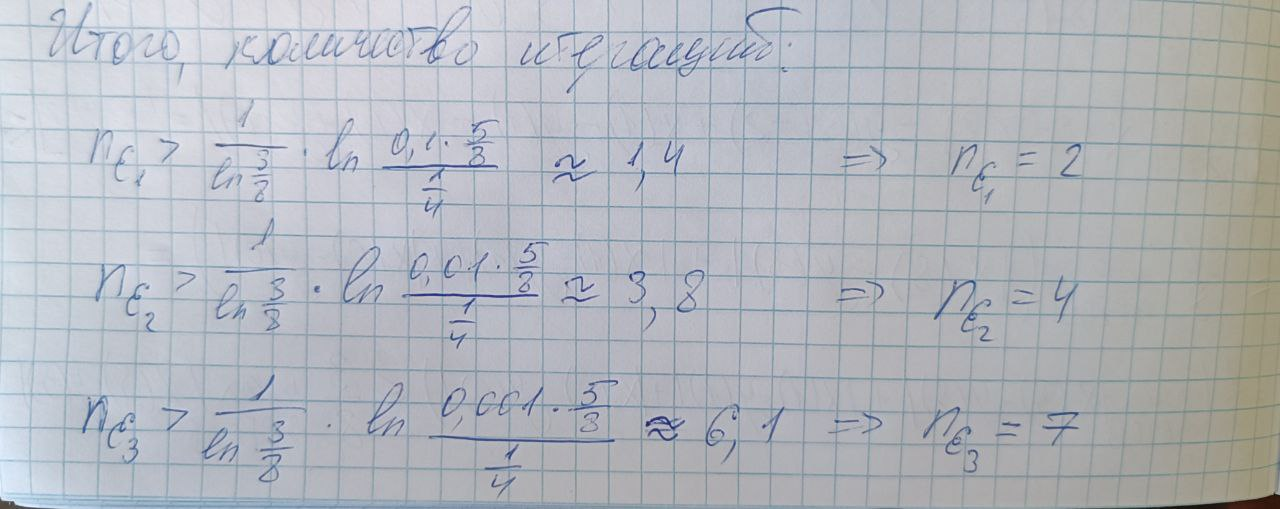 Итого, количество итераций:
n_{ε_1} > \frac{1}{ln \frac{3}{8}} · ln \frac{0,1 · \frac{5}{8}}{\frac{1}{4}} ≈ 1,4 => n_{ε_1} = 2
n_{ε_2} > \frac{1}{ln \frac{3}{8}} · ln \frac{0,01 · \frac{5}{8}}{\frac{1}{4}} ≈ 3,8 => n_{ε_2} = 4
n_{ε_3} > \frac{1}{ln \frac{3}{8}} · ln \frac{0,001 · \frac{5}{8}}{\frac{1}{4}} ≈ 6,1 => n_{ε_3} = 7